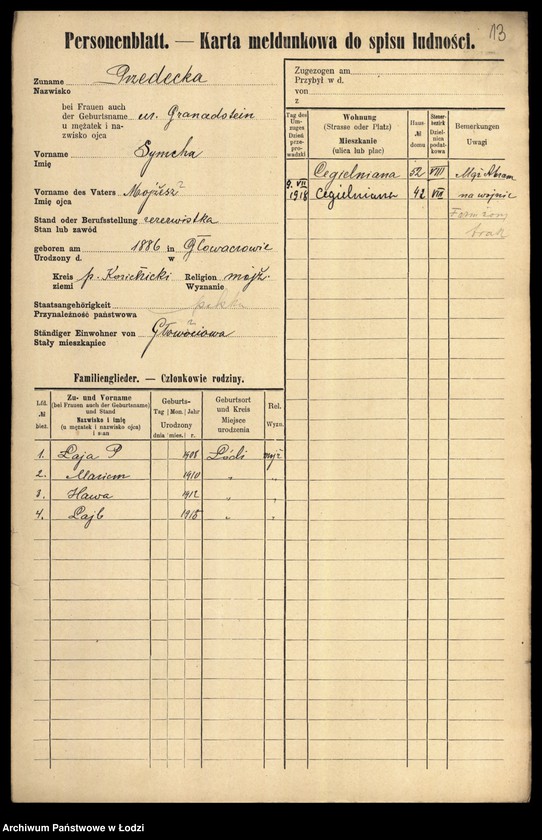 13
Personenblatt. — Karta meldunkowa do spisu ludności.
Zuname Przedecka
Nazwisko
bei Frauen auch
der Geburtsname ur. Granadstein
u mężatek i na-
zwisko ojca
Vorname Symcha
Imię
Vorname des Vaters Mojżesz
Imię ojca
Stand oder Berufsstellung rezerwistka
Stan lub zawód
geboren am 1886 in Głowaczowie
Urodzony d. w
Kreis p. Kozienicki Religion mojż.
ziemi Wyznanie
Staatsangehörigkeit
Przynależność państwowa
Ständiger Einwohner von
Stały mieszkapiec
Zugezogen am
Przybył w d.
von
z
Tag des Um-zuges Dzień prze-pro-wadzki
Wohnung (Strasse oder Platz) Mieszkanie (ulica lub plac)
Haus-№ domu
Steuer-bezirk Dziel-nica podat-kowa
Bemerkungen Uwagi
Cegielniana 52 VIII Mąż Abram
9. VII 1918 Cegielniana 42 VIII na wojnie
brak
Familienglieder. — Członkowie rodziny.
Lfd. № bież.
Zu- und Vorname (bei Frauen auch der Geburtsname) und Stand Nazwisko i imię (u mężatek i nazwisko ojca) i stan
Geburts- Tag | Mon. | Jahr Urodzony dnia mies. r.
Geburtsort und Kreis Miejsce urodzenia
Rel. Wyzn.
1. Łaja P 1908 Łódź mojż
2. Mariem 1910 " "
3. Hawa 1912 " "
4. Lajb 1915 " "
Archiwum Państwowe w Łodzi